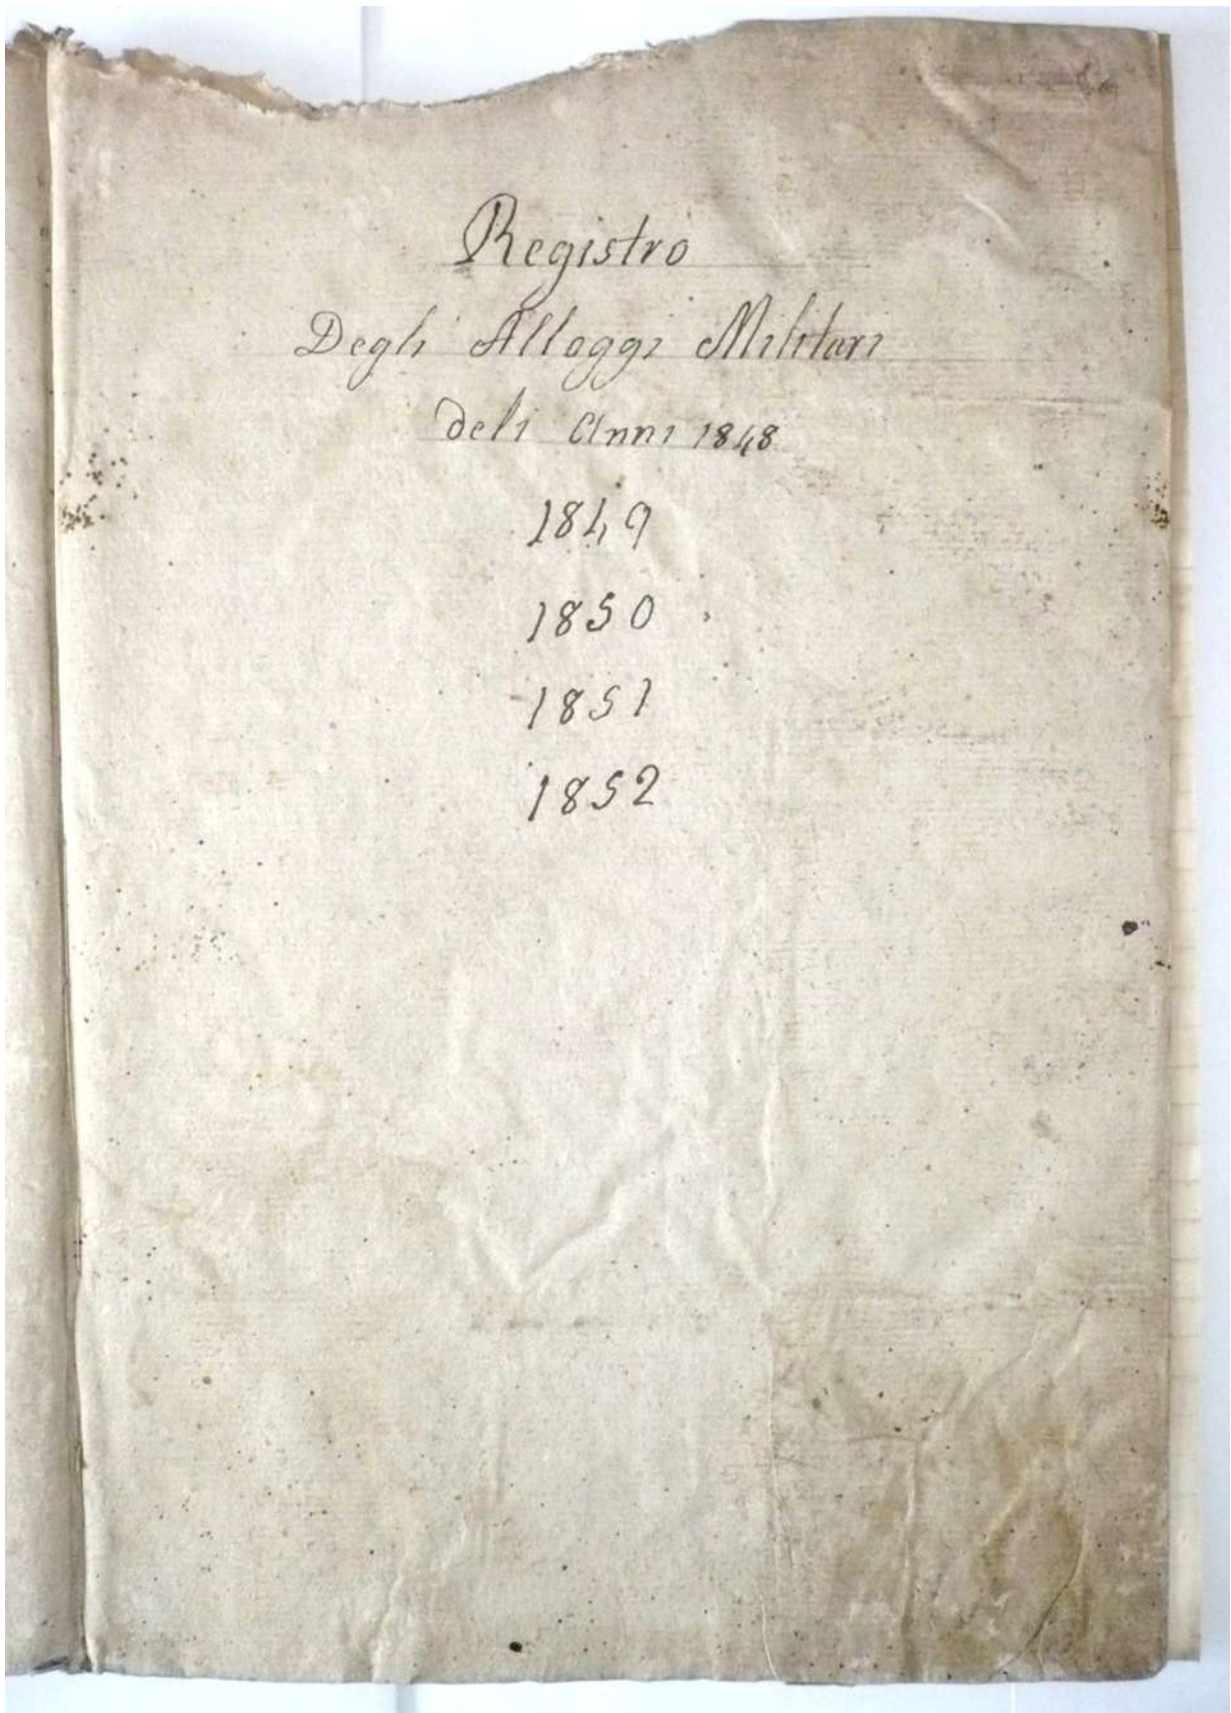 Registro
Degli Alloggi Militari
deli Anni 1848
1849
1850
1851
1852